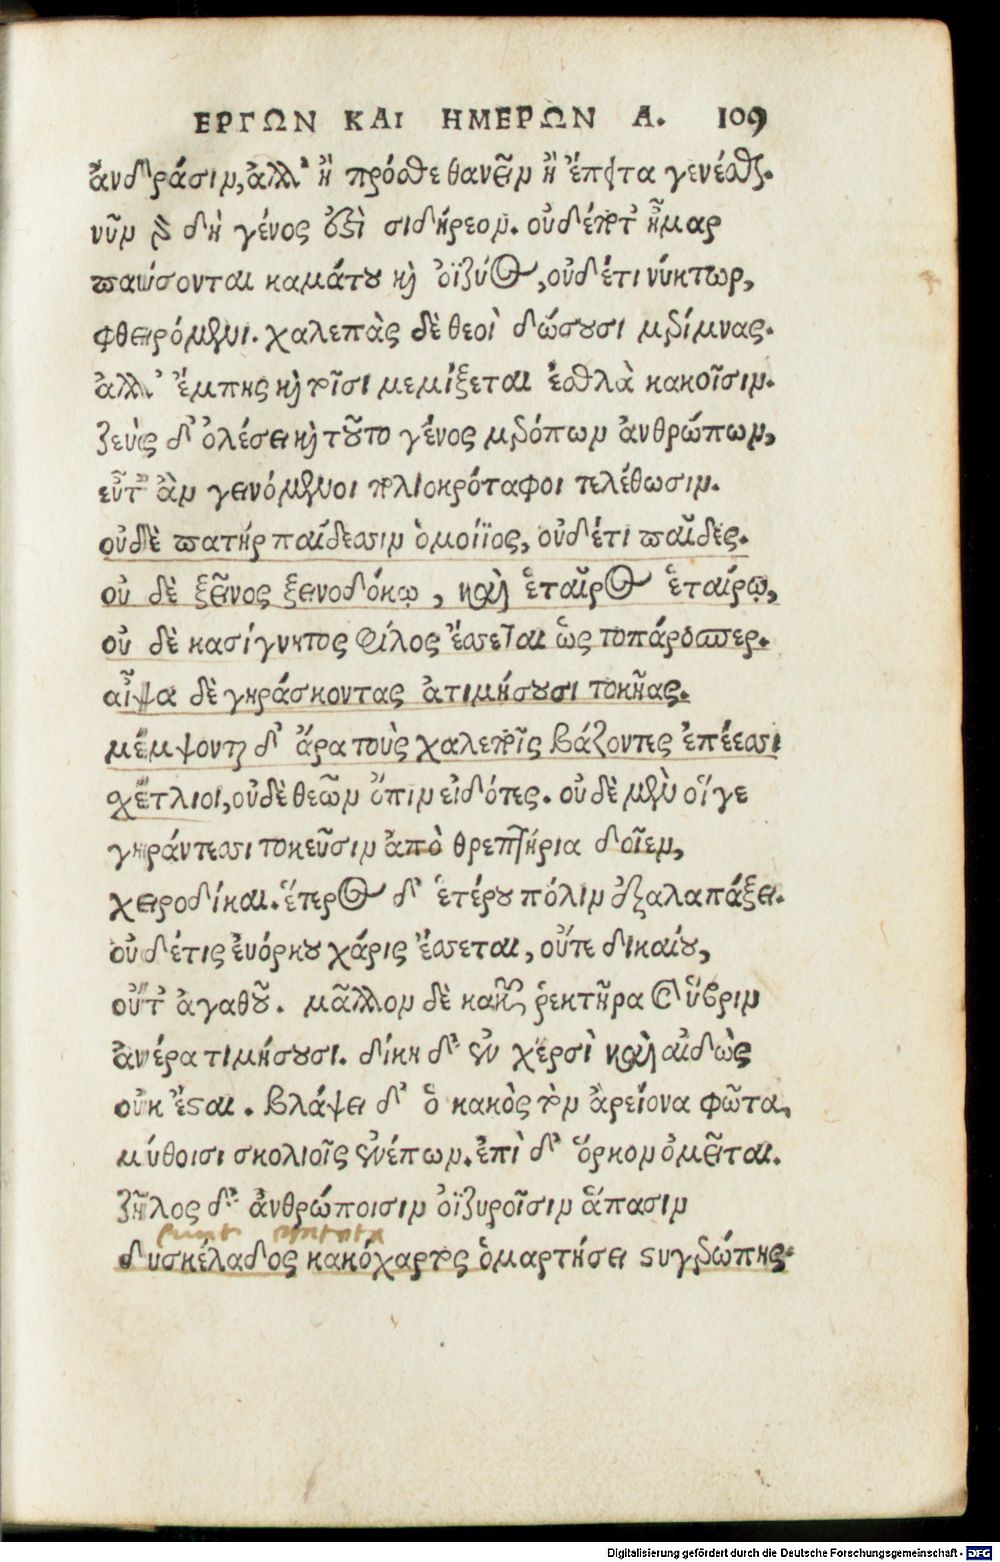 ΕΡΓΩΝ ΚΑΙ ΗΜΕΡΩΝ Α. 109
ἀνδράσιν, ἀλλ' ἢ πρόσθε θανεῖν ἢ ἔπειτα γενέσθαι.
νῦν γὰρ δὴ γένος ἐστὶ σιδήρεον. οὐδέποτ' ἦμαρ
παύσονται καμάτου καὶ ὀϊζύος, οὐδέτι νύκτωρ,
φθειρόμενοι. χαλεπὰς δὲ θεοὶ δώσουσι μερίμνας.
ἀλλ' ἔμπης καὶ τοῖσι μεμίξεται ἐσθλὰ κακοῖσιν.
ζεὺς δ' ὀλέσει καὶ τοῦτο γένος μερόπων ἀνθρώπων,
εὖτ' ἂν γεινόμενοι πολιοκρόταφοι τελέθωσιν.
οὐδὲ πατὴρ παίδεσσιν ὁμοίϊος, οὐδέτι παῖδες.
οὐ δὲ ξεῖνος ξεινοδόκῳ, καὶ ἑταῖρος ἑταίρῳ,
οὐ δὲ κασίγνητος φίλος ἔσσεται ὡς τοπάροσπερ.
αἶψα δὲ γηράσκοντας ἀτιμήσουσι τοκῆας.
μέμψονται δ' ἄρα τοὺς χαλεποῖς βάζοντες ἐπέεσσι
σχέτλιοι, οὐδὲ θεῶν ὄπιν εἰδότες. οὐ δὲ μὲν οἵγε
γηράντεσσι τοκεῦσιν ἀπὸ θρεπτήρια δοῖεν,
χειροδίκαι. ἕτερος δ' ἑτέρου πόλιν ἐξαλαπάξει.
οὐδέτις ἐυόρκου χάρις ἔσσεται, οὔτε δικαίου,
οὔτ' ἀγαθοῦ. μᾶλλον δὲ κακῶν ῥεκτῆρα καὶ ὕβριν
ἀνέρα τιμήσουσι. δίκη δ' ἐν χερσὶ καὶ αἰδὼς
οὐκ ἔσται. βλάψει δ' ὁ κακὸς τὸν ἀρείονα φῶτα,
μύθοισι σκολιοῖς ἐνέπων. ἐπὶ δ' ὅρκον ὀμεῖται.
ζῆλος δ' ἀνθρώποισιν ὀϊζυροῖσιν ἅπασιν
δυσκέλαδος κακόχαρτος ὁμαρτήσει στυγερώπης.
Digitalisierung gefördert durch die Deutsche Forschungsgemeinschaft - DFG